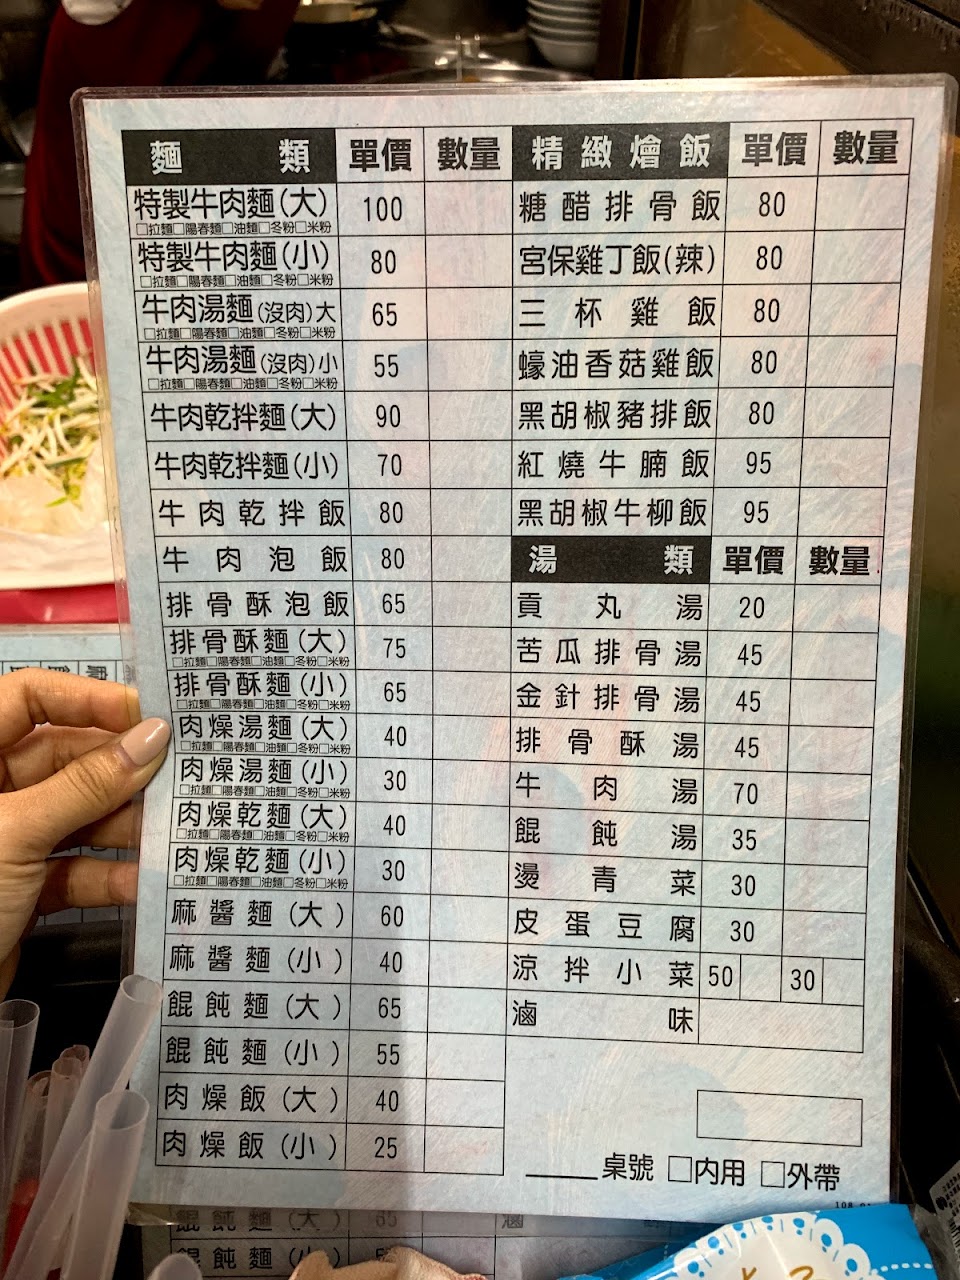 麵類 單價 數量
特製牛肉麵(大) 100
□拉麵□陽春麵□油麵□冬粉□米粉
特製牛肉麵(小) 80
□拉麵□陽春麵□油麵□冬粉□米粉
牛肉湯麵(沒肉)大 65
□拉麵□陽春麵□油麵□冬粉□米粉
牛肉湯麵(沒肉)小 55
□拉麵□陽春麵□油麵□冬粉□米粉
牛肉乾拌麵(大) 90
牛肉乾拌麵(小) 70
牛肉乾拌飯 80
牛肉泡飯 80
排骨酥泡飯 65
排骨酥麵(大) 75
□拉麵□陽春麵□油麵□冬粉□米粉
排骨酥麵(小) 65
□拉麵□陽春麵□油麵□冬粉□米粉
肉燥湯麵(大) 40
□拉麵□陽春麵□油麵□冬粉□米粉
肉燥湯麵(小) 30
□拉麵□陽春麵□油麵□冬粉□米粉
肉燥乾麵(大) 40
□拉麵□陽春麵□油麵□冬粉□米粉
肉燥乾麵(小) 30
□拉麵□陽春麵□油麵□冬粉□米粉
麻醬麵(大) 60
麻醬麵(小) 40
餛飩麵(大) 65
餛飩麵(小) 55
肉燥飯(大) 40
肉燥飯(小) 25
精緻燴飯 單價 數量
糖醋排骨飯 80
宮保雞丁飯(辣) 80
三杯雞飯 80
蠔油香菇雞飯 80
黑胡椒豬排飯 80
紅燒牛腩飯 95
黑胡椒牛柳飯 95
湯類 單價 數量
貢丸湯 20
苦瓜排骨湯 45
金針排骨湯 45
排骨酥湯 45
牛肉湯 70
餛飩湯 35
燙青菜 30
皮蛋豆腐 30
涼拌小菜 50 30
滷味
_____桌號 □內用 □外帶
餛飩麵(大) 65 滷
餛飩麵(小)